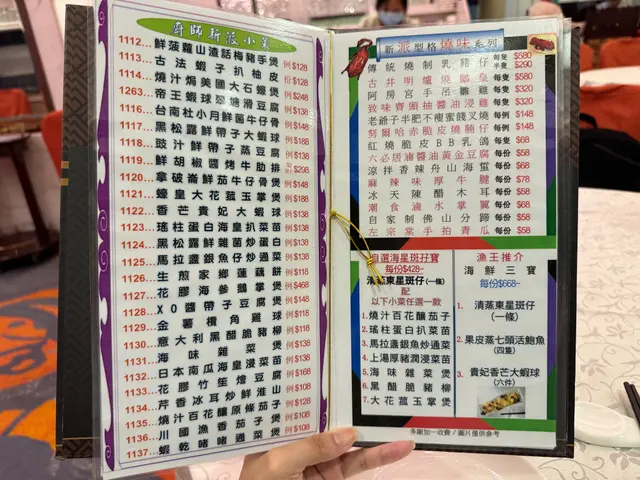 廚師新派小菜
1112...鮮菠蘿山渣話梅豬手煲 例$128
1113...古法蝦子扒柚皮 份$128
1114...燒汁焗美國大石蠔煲 例$248
1263...帝王蝦球翠塘滑豆腐 例$138
1116...台南杜小月鮮菌牛仔骨 例$148
1117...黑松露鮮帶子大蝦球 例$188
1118...豉汁鮮帶子蒸豆腐 例$138
1119...鮮胡椒醬烤牛肋排 $298
1120...拿破崙鮮茄牛仔骨煲 例$148
1121...蠔皇大花菰玉掌煲 例$188
1122...香芒貴妃大蝦球 例$138
1123...瑤柱蛋白海皇扒菜苗 例$138
1124...黑松露鮮雜菌炒蛋白 例$138
1125...馬拉盞銀魚仔炒通菜 例$118
1126...生煎家鄉蓮藕餅 例$118
1127...花膠海參鵝掌煲 例$468
1128...XO醬帶子豆腐煲 例$148
1129...金薯欖角雞球 例$118
1130...意大利黑醋脆豬柳 例$118
1131...海味雜菜煲 例$108
1132...日本南瓜海皇浸菜苗 例$138
1133...花膠竹笙燴豆腐 例$168
1134...芹香冰耳炒鮮淮山 例$108
1135...燒汁百花釀原條茄子 例$128
1136...川國漁香茄子煲 例$108
1137...蝦乾啫啫通菜煲 例$108
新派型格燒味系列
傳統燒制乳豬仔 每隻$580 半隻$290
古井明爐燒鵝皇 每隻$580
阿房宮手吊雞 每隻$320
致味齊頭抽醬油浸雞 每隻$320
老爺子半肥不瘦蜜餞叉燒 每例$148
努爾哈赤脆皮燒腩仔 每例$148
紅燒脆皮BB乳鴿 每隻$68
六必居滷醬油黃金豆腐 每份$58
涼拌香辣舟山海蜇 每份$68
麻辣味厚牛腱 每份$78
冰天陳醋木耳 每份$58
潮食滷水掌翼 每份$68
自家制佛山分蹄 每份$58
左宗棠手拍青瓜 每份$58
自選海星斑孖寶
每份$428~
清蒸東星斑仔(一條)
配
以下小菜任選一款
1.燒汁百花釀茄子
2.瑤柱蛋白扒菜苗
3.馬拉盞銀魚炒通菜
4.上湯厚豬潤浸菜苗
5.海味雜菜煲
6.黑醋脆豬柳
7.大花菰玉掌煲
漁王推介
海鮮三寶
每份$668~
1.清蒸東星斑仔
(一條)
2.果皮蒸七頭活鮑魚
(四隻)
3.貴妃香芒大蝦球
(六件)
多謝加一收費/圖片僅供參考